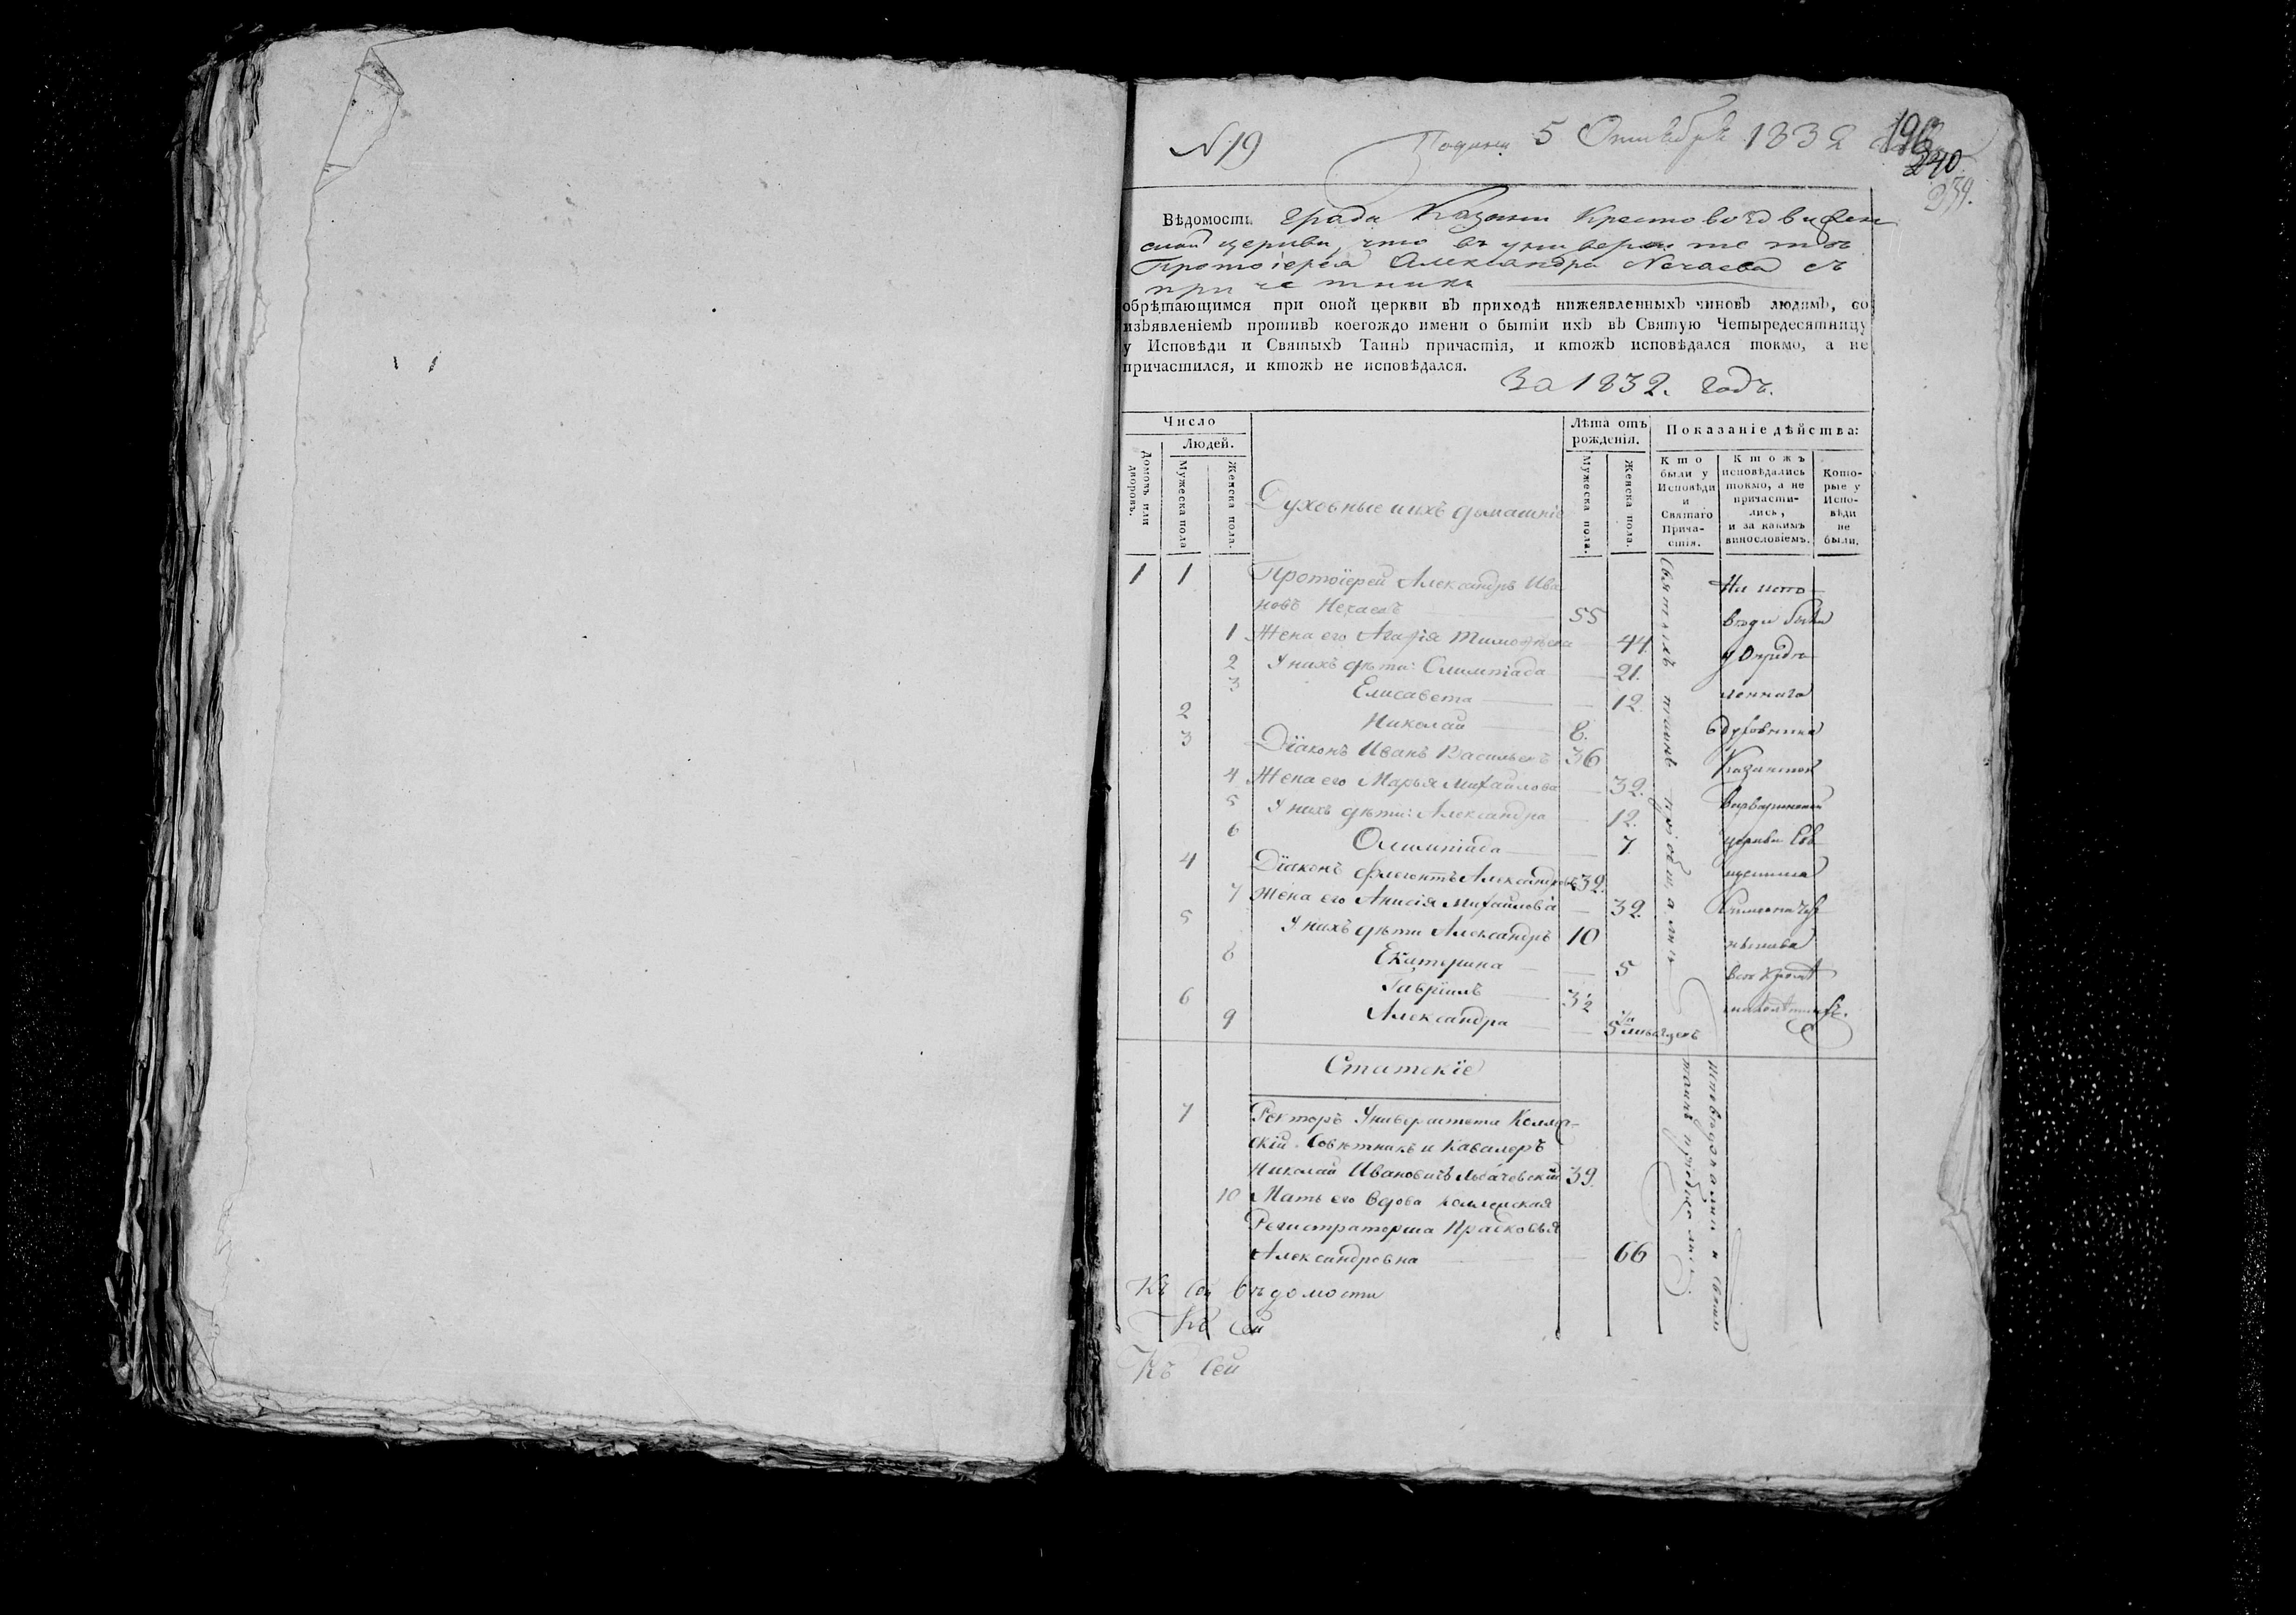 N 19
5 Октября 1832
190
240
239.
Вѣдомость града Казани Крестовоздвижен
ской церкви, что въ университетѣ
Протоіерея Александра Нечаева съ
причетники
обрѣтающимся при оной церкви въ приходѣ нижеявленныхъ чиновъ людямъ, со
изъявленіемъ противъ коегождо имени о бытіи ихъ въ Святую Четыредесятницу
у Исповѣди и Святыхъ Таинъ причастія, и ктожъ исповѣдался токмо, а не
причастился, и ктожъ не исповѣдался.
За 1832. годъ.
Число
Людей.
Домовъ или дворовъ.
Мужеска пола
Женска пола.
Духовные и ихъ домашніе
Лѣта отъ рожденія.
Мужеска пола.
Женска пола.
Показаніе дѣйства:
Кто были у Исповѣди и Святаго Прича-стія.
Ктожъ исповѣдались токмо, а не причасти-лись, и за какимъ винословіемъ.
Кото-рые у Испо-вѣди не были.
1 1 Протоіерей Александръ Ива
новъ Нечаевъ 55
1 Жена его Агафія Тимофѣева 44
2 У нихъ дѣти: Олимпіада 21.
3 Елисавета 12.
2 Николай 8.
3 Діаконъ Иванъ Васильевъ 36
4 Жена его Марья Михайлова 32.
5 У нихъ дѣти: Александра 12.
6 Олимпіада 7
4 Діаконъ Флегонтъ Александровъ 32.
7 Жена его Анисія Михайлова 32.
5 У нихъ дѣти Александръ 10
8 Екатерина 5
6 Гавріилъ 3½
9 Александра 5
Святыхъ таинъ пріобщались
На испо
вѣди были
у Опредѣ
леннаго
духовника
Казанской
Варваринской
церкви Свя
щенника
всѣ кромѣ
малолѣтнихъ.
Статскіе
7 Ректоръ Университета Коллеж-
скій Совѣтникъ и Кавалеръ
Николай Ивановичъ Лобачевскій 39.
10 Мать его Вдова Коллежская
Регистраторша Прасковья
Александровна 66
исповѣдались и Святыхъ
таинъ пріобщались
Къ сей вѣдомости
Къ сей
Къ сей